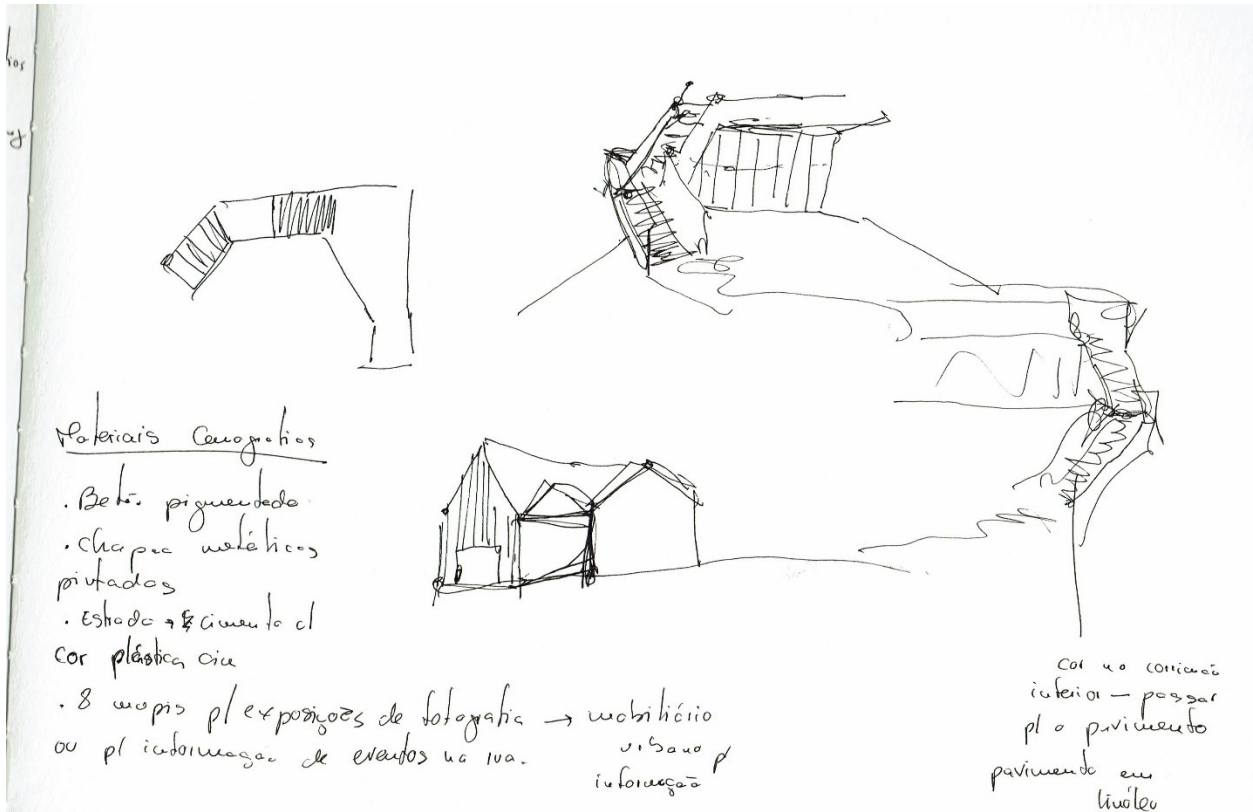 Materiais Cenográficos
. Betão pigmentado
. Chapas metálicas
pintadas
. Estrado → cimento c/
cor plástica
. 8 mupis p/ exposições de fotografia → mobiliário
ou p/ informação de eventos na rua.
urbano p/
informação
cor no corrimão
inferior — passar
p/ o pavimento
pavimento em
linóleo